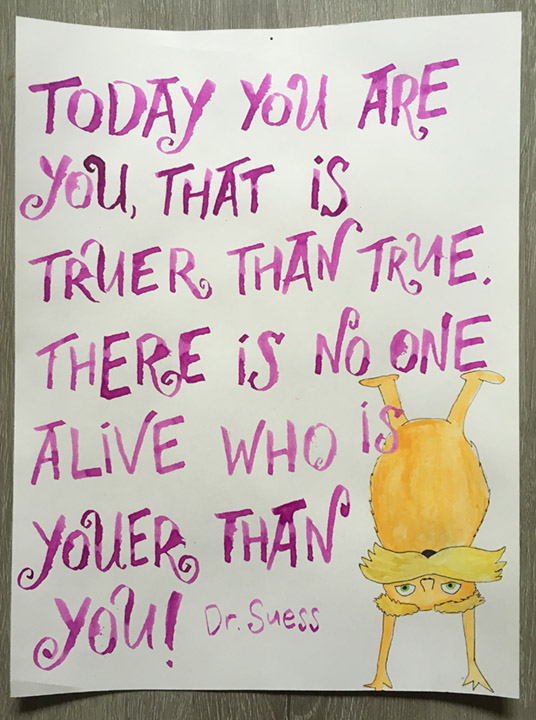 TODAY YOU ARE
YOU, THAT iS
TRUER THAN TRUE.
THERE iS NO ONE
ALiVE WHO iS
YOUER THAN
YOU! Dr. Suess